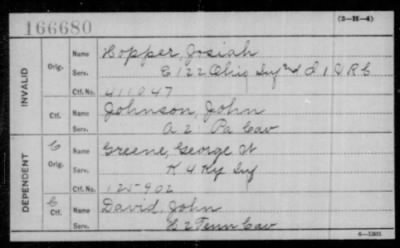 166680
(3-H-4)
INVALID
Orig.
Name Hopper, Josiah
Serv. E 122 Ohio Inf and D 1 V R C
Ctf. No. 411047
Ctf.
Name Johnson, John
Serv. A 21 Pa Cav
DEPENDENT
C
Orig.
Name Greene, George W
Serv. K 4 Ky Inf
Ctf. No. 125902
C
Ctf.
Name David, John
Serv. 2 Tenn Cav